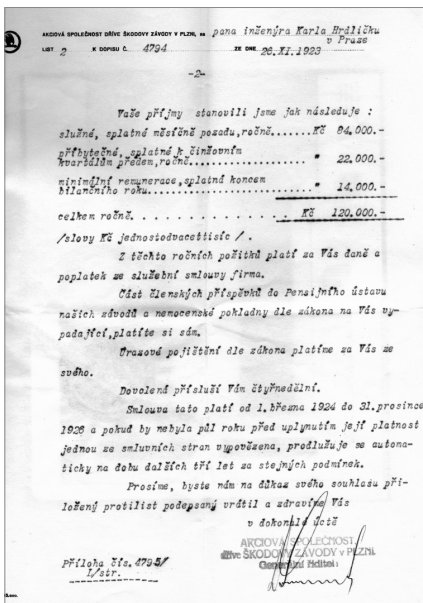 AKCIOVÁ SPOLEČNOST DŘÍVE ŠKODOVY ZÁVODY V PLZNI, na pana inženýra Karla Hrdličku
v Praze
LIST 2 K DOPISU Č. 4794 ZE DNE 26.XI.1923
-2-
Vaše příjmy stanovili jsme jak následuje :
služné, splatné měsíčně pozadu,ročně.......Kč 84.000.-
příbytečné, splatné k činžovním
kvartálům předem,ročně.................... " 22.000.-
minimální remunerace,splatná koncem
bilančního roku........................... " 14.000.-
celkem ročně. . . . . . . . . . . . . . Kč 120.000.-
/slovy Kč jednostodvacettisíc /.
Z těchto ročních požitků platí za Vás daně a
poplatek ze služební smlouvy firma.
Část členských příspěvků do Pensijního ústavu
našich závodů a nemocenské pokladny dle zákona na Vás vy-
padající,platíte si sám.
Úrazové pojištění dle zákona platíme za Vás ze
svého.
Dovolená přísluší Vám čtyřnedělní.
Smlouva tato platí od 1.března 1924 do 31.prosince
1926 a pokud by nebyla půl roku před uplynutím její platnost
jednou ze smluvních stran vypovězena, prodlužuje se automa-
ticky na dobu dalších tří let za stejných podmínek.
Prosíme, byste nám na důkaz svého souhlasu při-
ložený protilist podepsaný vrátil a zdravíme Vás
v dokonalé úctě
AKCIOVÁ SPOLEČNOST
dříve ŠKODOVY ZÁVODY v PLZNI.
Generální ředitel:
Příloha čís. 4795/
I/str.